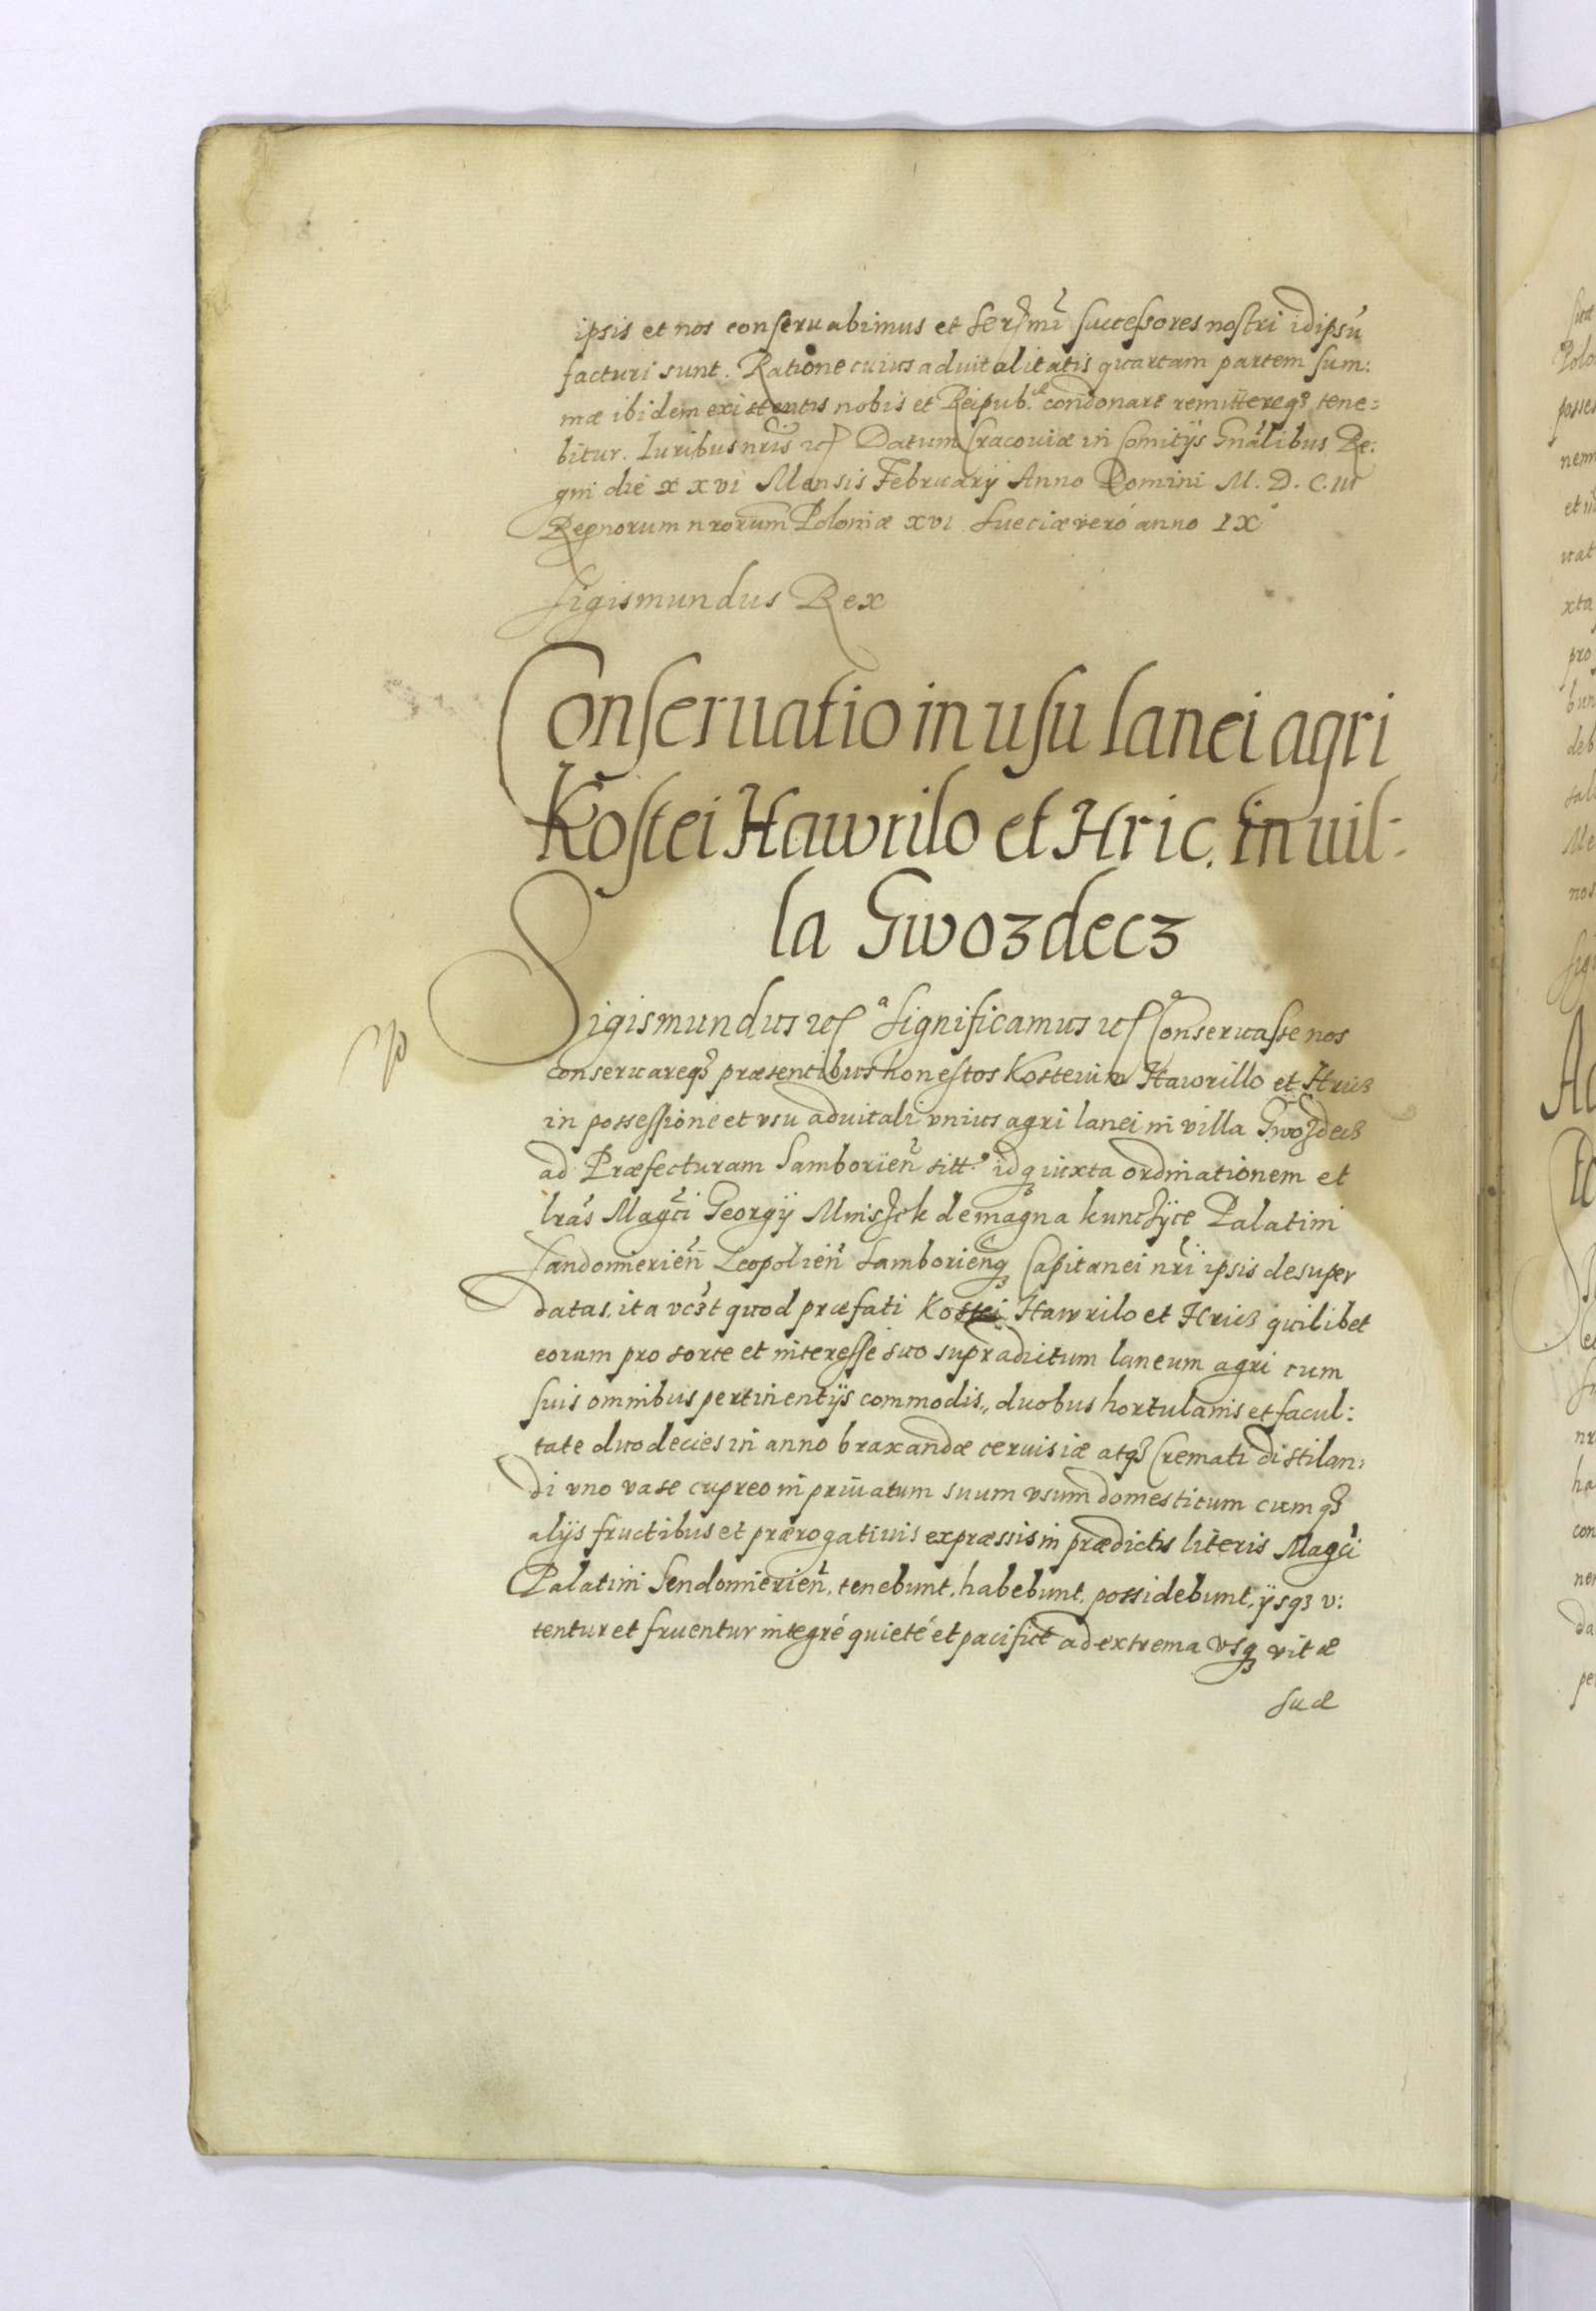 ipsis et nos conseruabimus et Sermi successores nostri idipsu
facturi sunt. Ratione cuius aduitalitatis quartam partem sum:
mæ ibidem existentis nobis et Reipub. condonare remittereqз tene:
bitur. Iuribus nris etc Datum Cracouiæ in Comitÿs Gnalibus Re:
gni die xxvi Mensis Februarÿ Anno Domini M. D. C. III
Regnorum nrorum Poloniæ xvi Sueciæ veró anno IX°
Sigismundus Rex
Conseruatio in usu lanei agri
Kostei Hawrilo et Hric. in uil:
la Gwozdecz
Sigismundus etc Significamus etc Conseruasse nos
conseruareqз præsentibus honestos Kosteium Hawrillo et Hricz
in possessione et vsu aduitali vnius agri lanei in villa Gwozdecz
ad Præfecturam Samborien sitt. idqз iuxta ordinationem et
lras Magci Georgÿ Mniszek de magna kunczÿce Palatini
Sandomierien Leopolien Samborienqз Capitanei nri ipsis desuper
datas. ita vczt quod præfati Kostei Hawrilo et Hricz quilibet
eorum pro sorte et interesse suo supradictum laneum agri cum
suis omnibus pertinentÿs commodis,, duobus hortulanis et facul:
tate duodecies in anno braxandæ ceruisiæ atqз Cremati distilan:
di vno vase cupreo in priuatum suum vsum domesticum cumqз
alÿs fructibus et prærogatiuis expræssis in prædictis literis Magci
Palatini Sendomierien. tenebunt. habebunt. possidebunt, ÿsqз v:
tentur et fruentur integré quieté et pacificé ad extrema vsqз vitæ
suæ